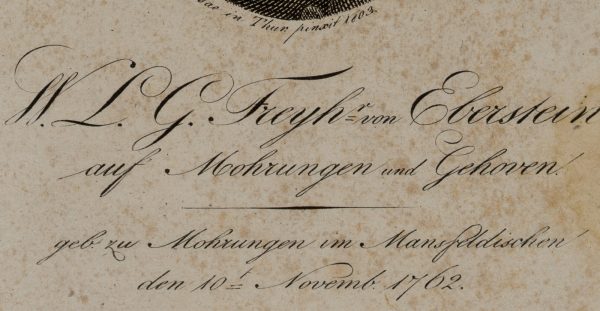 in Thur. pinxit 1803.
W. L. G. Freyhr von Eberstein
auf Mohrungen und Gehoven.
geb. zu Mohrungen im Mansfeldischen
den 10t Novemb. 1762.